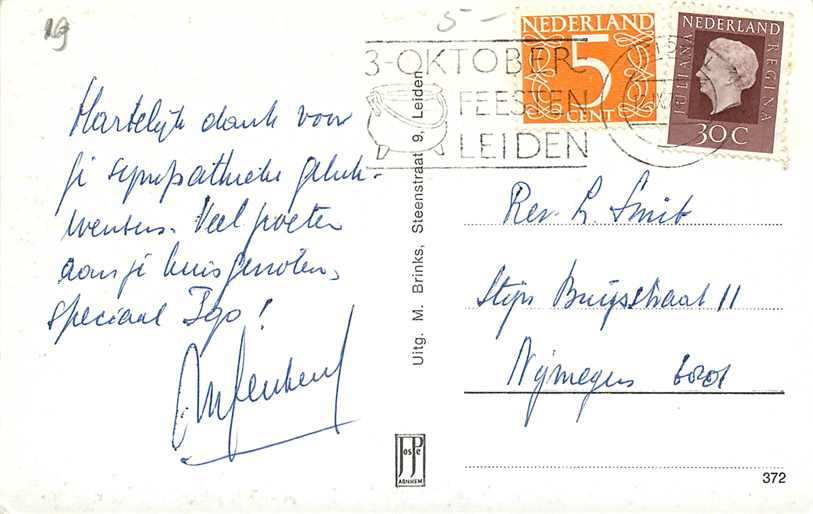 19
5-
NEDERLAND
5
CENT
NEDERLAND
JULIANA REGINA
30 C
3-OKTOBER-
FEESTEN
LEIDEN
Hartelijk dank voor
je sympathieke geluk-
wensen. Veel groeten
aan je huisgenoten,
speciaal
Uitg. M. Brinks, Steenstraat 9, Leiden
Rev. L. Smit
Stijn Buijsstraat 11
Nijmegen
JosPé
ARNHEM
372